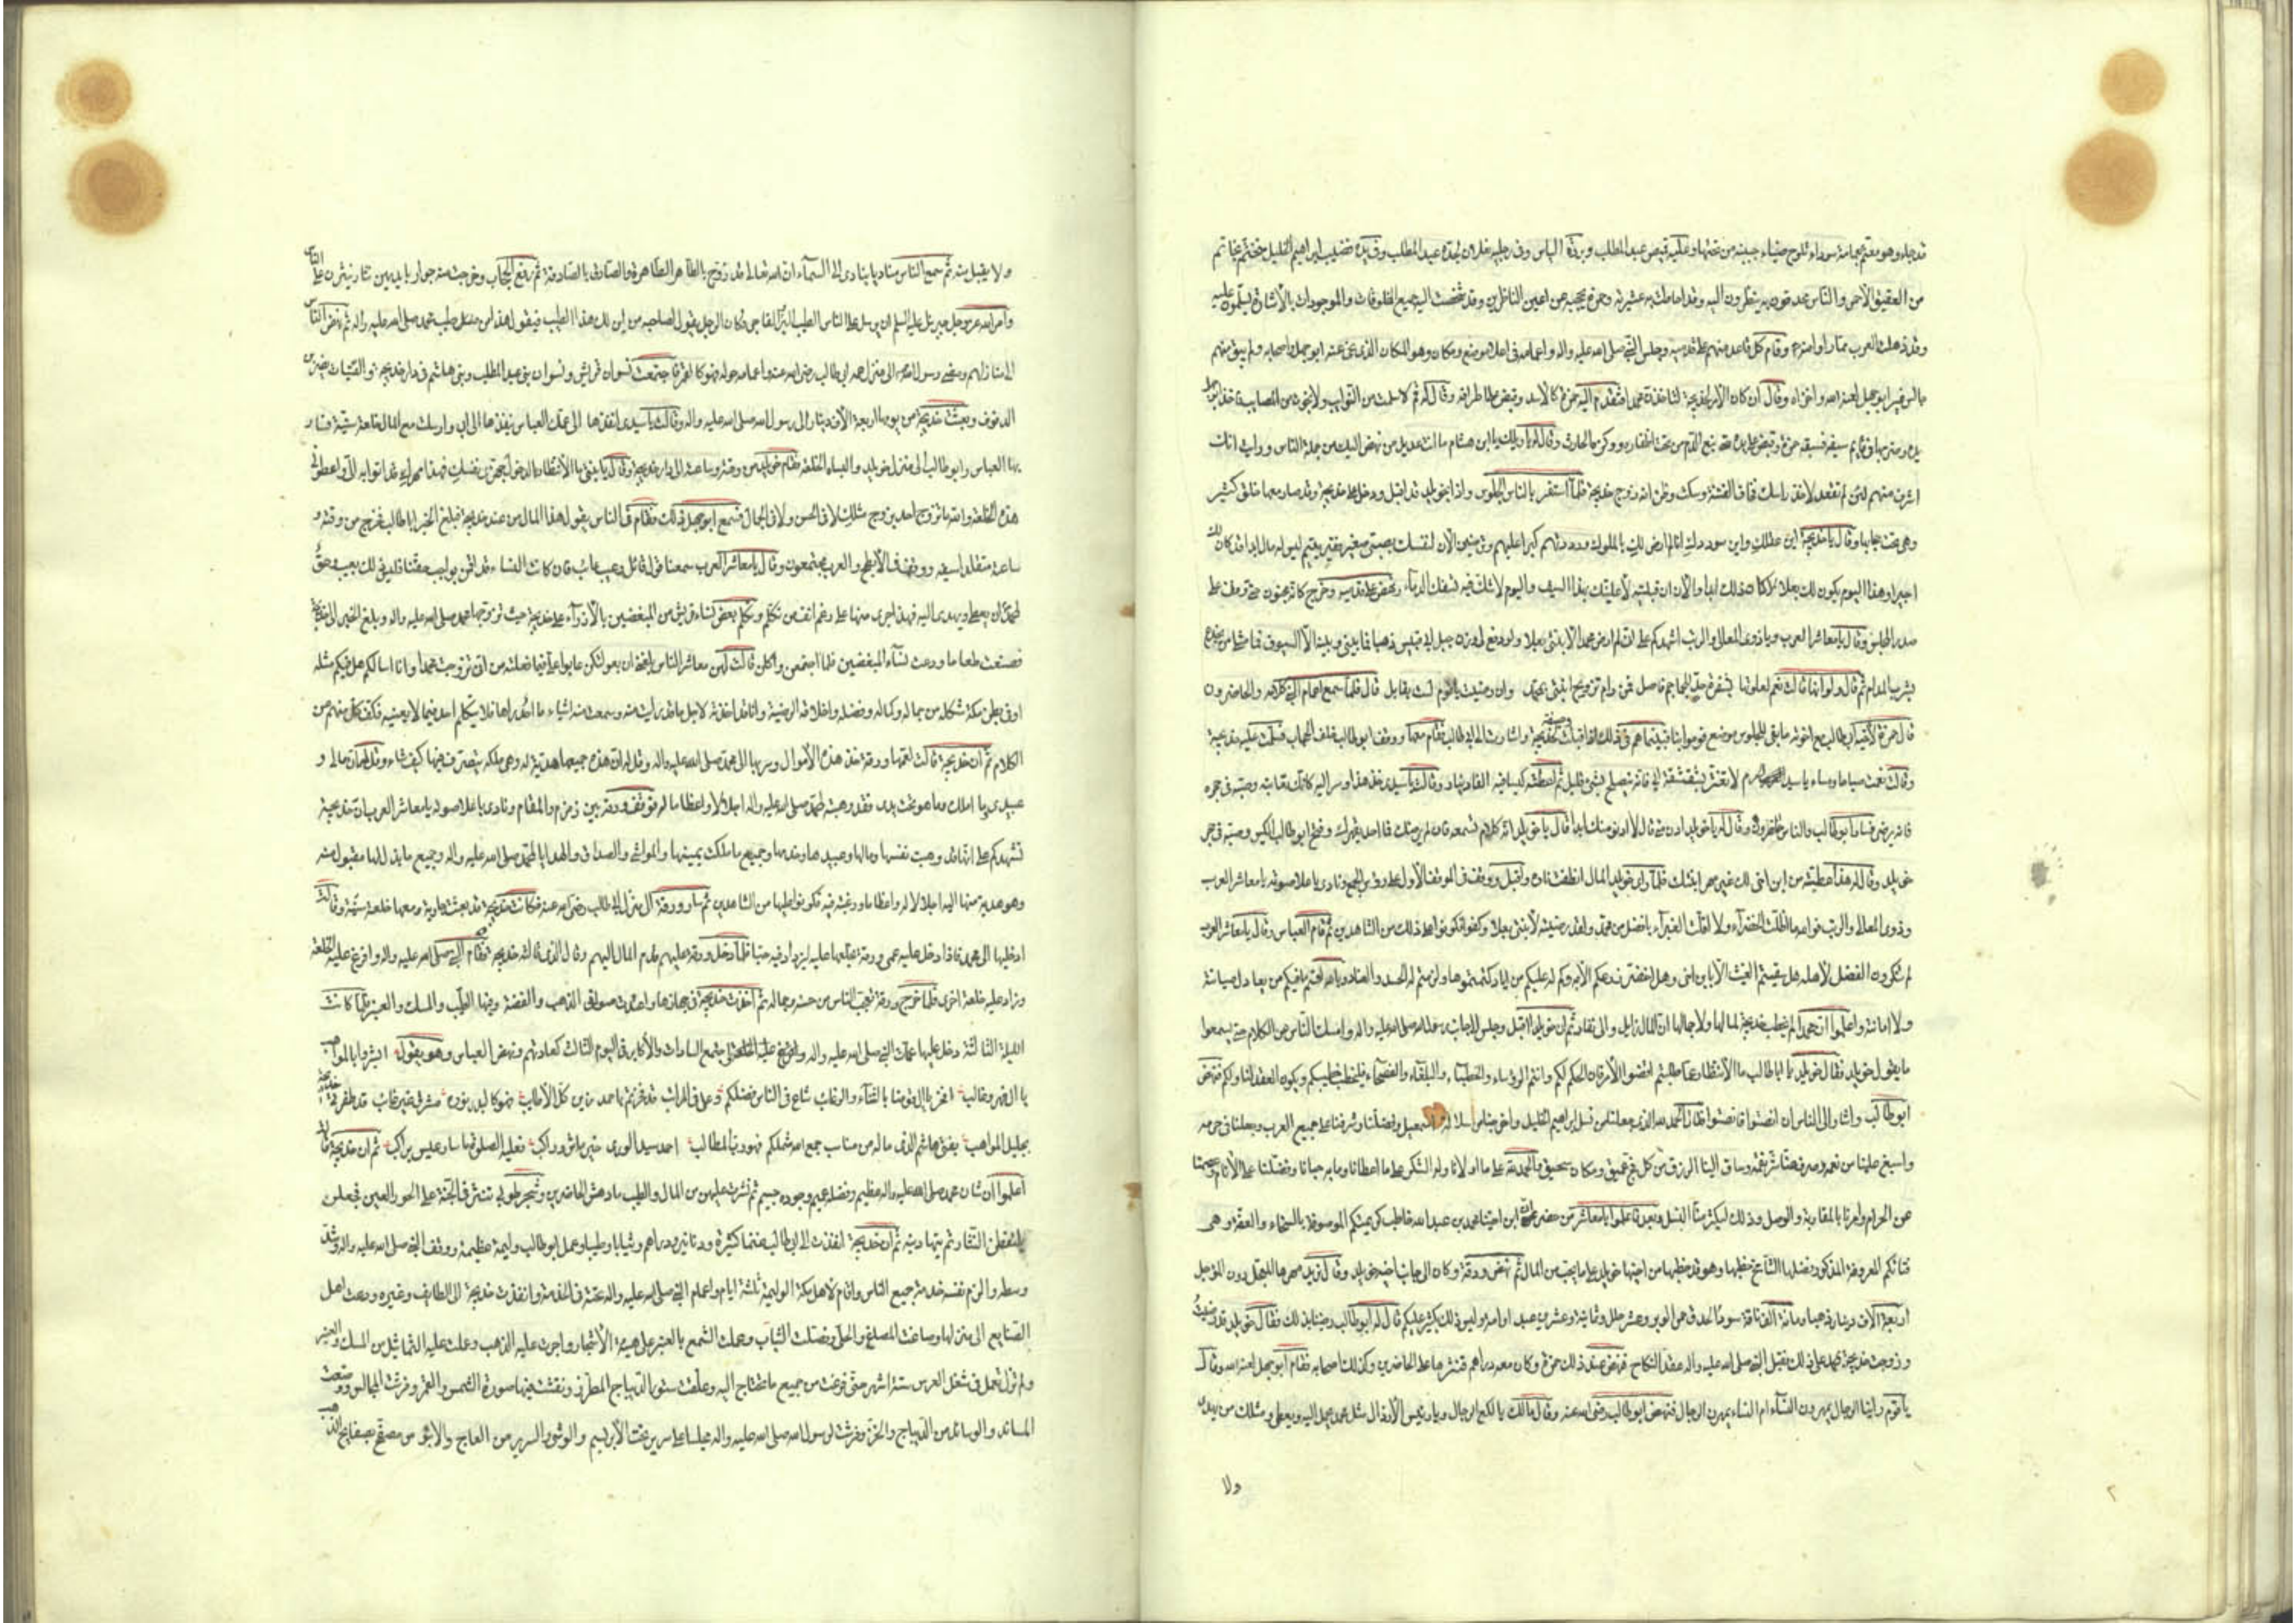 قد جلد وهو معتم بعمامة سوداء تلوح ضياء جبينه من تحتها وعليه قميص عبد المطلب وبردة الياس وفي رجليه نعلان لجده عبد المطلب وفي يده قضيب ابراهيم الخليل متختم بخاتم
من العقيق الأحمر والناس محدقون به ينظرون اليه وقد احاطت به عشيرته وحمزة يحجبه عن اعين الناظرين وقد شخصت اليه جميع المخلوقات والموجودات بالأشارة يسلمون عليه
وقد ذهلت العرب مما رأوا منه وقام كل قاعد منهم على قدميه وجلس النبي صلى الله عليه واله واعمامه في اعلا موضع ومكان وهو المكان الذي نحى عنه ابو جهل واصحابه ولم يبق منهم
جالس غير ابو جهل لعنه الله واخزاه وقال ان كان الأمر لخديجة لتأخذن محمد افتقدم اليه حمزة كالأسد وقبض على اطرافه وقال له قم لا سلمت من النوائب ولا نجوت من المصائب فأخذ ابو جهل
يده وضربها في قائم سيفه فسبقه حمزة وقبض على يده حتى نبع الدم من تحت اظفاره ووكزه الحارث وقال له ويلك يا ابن هشام ما انت عديل من نهض اليك من جملة الناس ورأيت انك
اشرف منهم لئن لم تقعد لاخذن راسك فخاف الفتنة وسكت وظن انه زوج خديجة فلما استقر بالناس الجلوس واذا بخويلد قد اقبل ودخل على خديجة وقد صار معها خلق كثير
وهي تحت حجابها وقال يا خديجة اين عقلك واين سوددك انا لم ارض لك بالملوك ورددتهم كبرا عليهم وترضين الآن لنفسك بصبي صغير فقير يتيم ليس له مال ابدا قد كان لك
اجيرا وهذا اليوم يكون لك بعلا لا كان ذلك ابدا والآن ان قبلتيه لأعلينك بهذا السيف واليوم لا شك فيه تسفك الدماء ونهض على قدميه وخرج كأنه مجنون حتى وقف على
صدر المجلس وقال يا معاشر العرب ويا ذوي المعالي والرتب اشهدكم على اني لم ارض محمدا لابنتي بعلا ولو دفع لي وزن جبل ابي قبيس ذهبا فما بيني وبينه الا السيوف فما مثلي من يخدع
بشرب المدام ثم قال ولو انها قالت نعم لعلوتها بشفرة حد للجماجم فاصل فمن رام تزويج ابنتي بمحمد وان رضيت يا قوم لست بقابل قال فلما سمع اعمام النبي كلامه والحاضرون
قال حمزة لأخيه ابي طالب مع اخوته ما بقي للجلوس موضع قوموا بنا فبينما هم في ذلك اذ اقبلت جارية خديجة واشارت الى ابي طالب فقام معها ووقف ابو طالب خلف الحجاب فسلمت عليه خديجة
وقالت نعمت صباحا ومساء يا سيد الحرم لا تغتر بشقشقة ابي فانه يصلح بشيء قليل ثم اعطته كيسا فيه الف دينار وقالت يا سيدي خذ هذا وسر اليه كأنك تعاتبه وصبه في حجره
فانه يرضى فسار ابو طالب والناس حاضرون وقال له يا خويلد ادن مني قال لا ادنو منك ابدا قال يا خويلد انه كلام تسمعه فان لم يرضك فما احد يقهرك وفتح ابو طالب الكيس وصبه في حجر
خويلد وقال له هذا عطية من ابن اخي لك غير مهر ابنتك فلما رأى خويلد المال انطفت ناره واقبل ووقف في الموقف الأول على رؤس الجمع ونادى باعلا صوته يا معاشر العرب
وذوي المعالي والرتب فو الله ما اظلت الخضراء ولا اقلت الغبراء بافضل من محمد ولقد رضيته لأبنتي بعلا وكفوا فكونوا على ذلك من الشاهدين ثم قام العباس وقال يا معاشر العرب
لم تنكرون الفضل لأهله هل سقيتم الغيث الا بابن اخي وهل اخضر زرعكم الا به وكم له عليكم من ايادي كتمتموها ولزمتم له الحسد والعناد وبالله اقسم ما فيكم من يعادل صيانته
ولا امانته واعلموا ان محمدا لم يخطب خديجة لمالها ولا جمالها ان المال زايل والى نفاد ثم ان خويلدا اقبل وجلس الى جانب رسول الله صلى الله عليه واله وامسك الناس عن الكلام حتى يسمعوا
ما يقول خويلد فقال خويلد يا ابا طالب ما الأنتظار عما طلبتم اقضوا الأمر فان الحكم لكم وانتم الرؤساء والخطباء والبلغاء والفصحاء فليخطب خطيبكم ويكون العقد لنا ولكم فنهض
ابو طالب واشار الى الناس ان انصتوا فأنصتوا فقال الحمد لله الذي جعلنا من نسل ابراهيم الخليل واخرجنا من سلالة اسمعيل وفضلنا وشرفنا على جميع العرب وجعلنا في حرمه
واسبغ علينا من نعمه وصرف عنا شر نقمه وساق الينا الرزق من كل فج عميق ومكان سحيق والحمد لله على ما اولانا وله الشكر على ما اعطانا وما به حبانا وفضلنا على الأنام وعصمنا
عن الحرام وامرنا بالمقاربة والوصل وذلك ليكثر منا النسل وبعد فاعلموا يا معاشر من حضر ان ابن اخينا محمد بن عبد الله خاطب كريمتكم الموصوفة بالسخاء والعفة وهي
فتاتكم المعروفة المذكور فضلها الشامخ خطبها وهو قد خطبها من ابيها خويلد على ما يحب من المال ثم نهض ورقة وكان الى جانب اخيه خويلد وقال نريد مهرها المعجل دون المؤجل
اربعة آلاف دينار ذهبا ومائة الف ناقة سود الحدق حمر الوبر وعشر حلل وثمانية وعشرين عبدا وامة وليس ذلك بكثير عليكم قال له ابو طالب رضينا بذلك فقال خويلد قد رضيت
وزوجت خديجة بمحمد على ذلك فقبل النبي صلى الله عليه واله عقد النكاح فنهض عند ذلك حمزة وكان معه دراهم فنثرها على الحاضرين وكذلك اصحابه فقام ابو جهل لعنه الله وقال
يا قوم رأينا الرجال يمهرون النساء ام النساء يمهرن الرجال فنهض ابو طالب رضي الله عنه وقال مالك يا لكع الرجال ويا رئيس الأرذال مثل محمد يحمل اليه ويعطى ومثلك من يهدي
ولا
ولا يقبل منه ثم سمع الناس مناديا ينادي من السماء ان الله تعالى قد زوج بالطاهر الطاهرة والصادق بالصادقة ثم رفع الحجاب وخرجت منه جوار بايديهن نثار ينثرن على الناس
وامر الله عز وجل جبرئيل عليه السلم ان يرسل على الناس الطيب على البر والفاجر وكان الرجل يقول لصاحبه من اين لك هذا الطيب فيقول هذا من طيب محمد صلى الله عليه واله ثم نهض الناس
الى منازلهم ومضى رسول الله الى منزل عمه ابي طالب رضي الله عنه واعمامه حوله وهو كالقمر فاجتمعت نسوان قريش ونسوان بني عبد المطلب وبني هاشم في دار خديجة والقينات يضربن
الدفوف وبعثت خديجة من يومها اربعة الآف دينار الى رسول الله صلى الله عليه واله وقالت يا سيدي انفذها الى عمك العباس ينفذها الى ابي وارسلت مع المال خلعة سنية فسار
بها العباس وابو طالب الى منزل خويلد والبساه الخلعة فقام خويلد من وقته وساعته الى دار خديجة وقال يا بنتي ما الأنتظار بالدخول جهزي نفسك فهذا مهرك قد اتوا به الي واعطوني
هذه الخلعة والله ما تزوج احد بزوج مثلك لا في الحسن ولا في الجمال فسمع ابو جهل ذلك فقام في الناس يقول هذا المال من عند خديجة فبلغ الخبر ابا طالب فخرج من وقته و
ساعته متقلدا سيفه ووقف في الأبطح والعرب مجتمعون وقال يا معاشر العرب سمعنا قول قائل وعيب عائب فان كانت النساء قد اقمن بواجب حقنا فليس ذلك بعيب وحق
لمحمد ان يعطى ويهدى اليه فهذا جرى منها على رغم انف من تكلم وتكلم بعض نساء قريش من المبغضين بالأزراء على خديجة حيث تزوجها محمد صلى الله عليه واله وبلغ الخبر الى خديجة
فصنعت طعاما ودعت نساء المبغضين فلما اجتمعن واكلن قالت لهن معاشر النساء بلغني ان بعولتكن عابوا علي فيما فعلته من اني تزوجت محمدا وانا اسألكم هل فيكم مثله
او في بطن مكة شكله من جماله وكماله وفضله واخلاقه الرضية وانا قد اخذته لاجل ما قد رأيت منه وسمعت منه اشياء ما احد رآها فلا يتكلم احد فيما لا يعنيه فكف كل منهم عن
الكلام ثم ان خديجة قالت لعمها ورقة خذ هذه الأموال وسر بها الى محمد صلى الله عليه واله وقل له ان هذه جميعها هدية له وهي ملكه يتصرف فيها كيف شاء وقل لهم ان مالي و
عبيدي وما املك وما هو تحت يدي فقد وهبته لمحمد صلى الله عليه واله اجلالا واعظاما له فوقف ورقة بين زمزم والمقام ونادى باعلا صوته يا معاشر العرب ان خديجة
تشهدكم على انها قد وهبت نفسها ومالها وعبيدها وخدمها وجميع ما ملكت يمينها والمواشي والصداق والهدايا لمحمد صلى الله عليه واله وجميع ما بذل لها مقبول منه
وهو هدية منها اليه اجلالا له واعظاما ورغبة فيه فكونوا عليها من الشاهدين ثم سار ورقة الى منزل ابي طالب رضي الله عنه فكانت خديجة قد بعثت جارية ومعها خلعة سنية وقالت
ادخليها الى محمد فاذا دخل عليه عمي ورقة يخلعها عليه ليزداد فيه حبا فلما دخل ورقة عليهم قدم المال اليهم وقال الذي قالته خديجة فقام النبي صلى الله عليه واله وافرغ عليه الخلعة
وزاد عليه خلعة اخرى فلما خرج ورقة تعجب الناس من حسنه وجماله ثم اخذت خديجة في جهازها واعدت صواني الذهب والفضة وفيها الطيب والمسك والعنبر فلما كانت
الليلة الثالثة دخل عليها عمات النبي صلى الله عليه واله واجتمع السادات والأكابر في اليوم الثالث كعادتهم ونهض العباس وهو يقول ابشروا بالمواهب
يا آل فهر وغالب افخروا يا آل قومنا بالثناء والرغائب شاع في الناس فضلكم وعلا في المراتب قد فخرتم باحمد زين كل الأطايب فهو كالبدر نوره مشرق غير غائب قد ظفرت خديجة
بجليل المواهب بفتى هاشم الذي ما له من مناسب جمع الله شملكم فهو رب المطالب احمد سيد الورى خير ماش وراكب فعليه الصلوة ما سار عيس براكب ثم ان خديجة قالت
اعلموا ان شان محمد صلى الله عليه واله عظيم وفضله عميم وجوده جسيم ثم نثرت عليهن من المال والطيب ما دهش الحاضرين وشجر طوبى تنثر في الجنة على الحور العين فجعلن
يلتقطن النثار ثم يتهادينه ثم ان خديجة انفذت الى ابي طالب غنما كثيرة ودنانير ودراهم وثيابا وطيبا وعمل ابو طالب وليمة عظيمة ووقف النبي صلى الله عليه واله وشد
وسطه والزم نفسه خدمة جميع الناس واقام لأهل مكة الوليمة ثلثة ايام واعمام النبي صلى الله عليه واله تحته في الخدمة وانفذت خديجة الى الطايف وغيره ودعت اهل
الصنايع الى منزلها وصاغت المصاغ والحلي وفصلت الثياب وعملت الشمع بالعنبر على هيئة الأشجار واجرت عليه الذهب وعملت عليه التماثيل من المسك والعنبر
ولم تزل تعمل في شغل العرس ستة اشهر حتى فرغت من جميع ما تحتاج اليه وعلقت ستور الديباج المطرز ونقشت فيها صورة الشمس والقمر وفرشت المجالس ووضعت
المساند والوسائد من الديباج والخز وفرشت لرسول الله صلى الله عليه واله مجلسا على سرير تحت الأبريسم والوشي والسرير من العاج والابنوس مصفح بصفايح الذهب